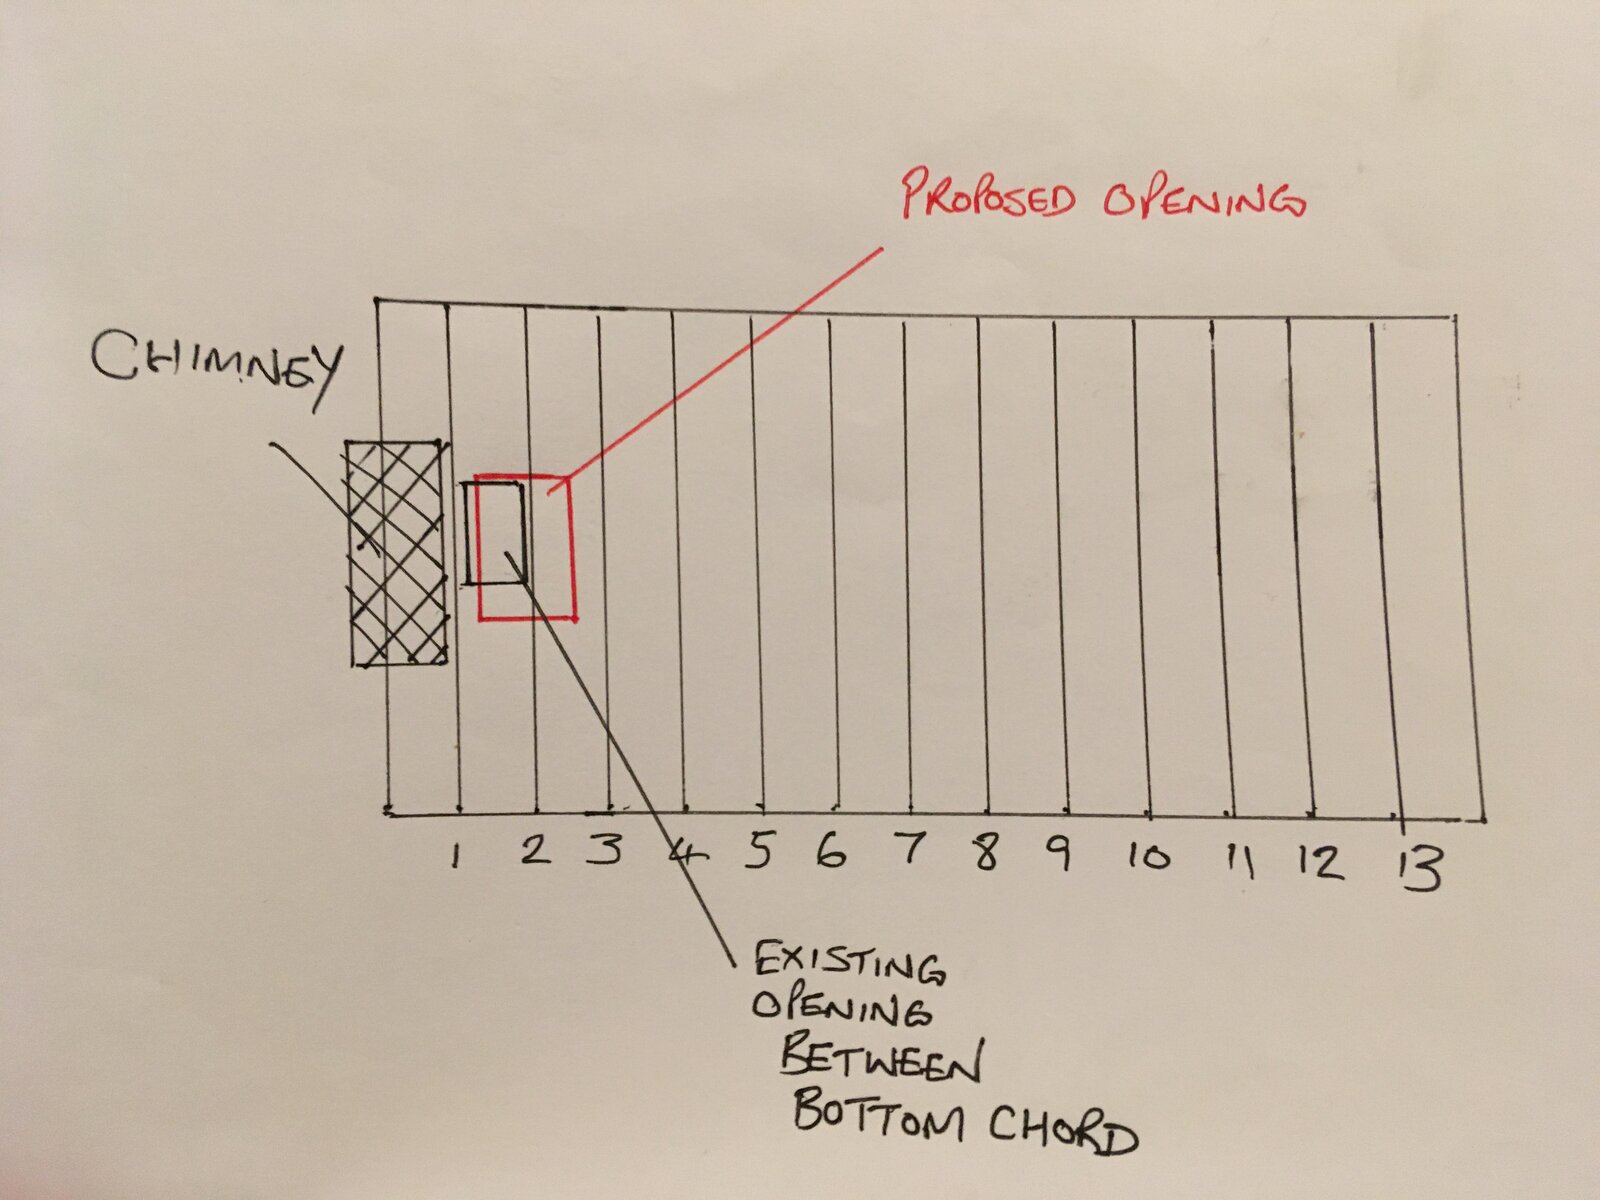 PROPOSED OPENING
CHIMNEY
1 2 3 4 5 6 7 8 9 10 11 12 13
EXISTING
OPENING
BETWEEN
BOTTOM CHORD